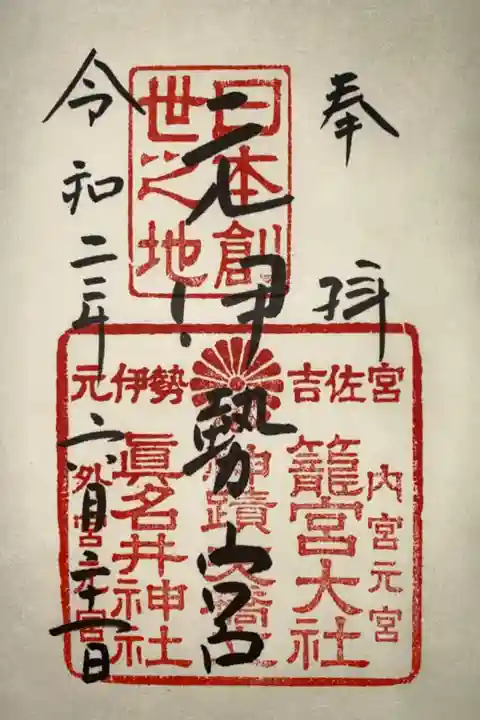 奉拝
日本創
世之地
元伊勢宮
令和二年六月二十一日
元伊勢 吉佐宮
内宮元宮
籠宮大社
神蹟天橋立
眞名井神社
外宮元宮